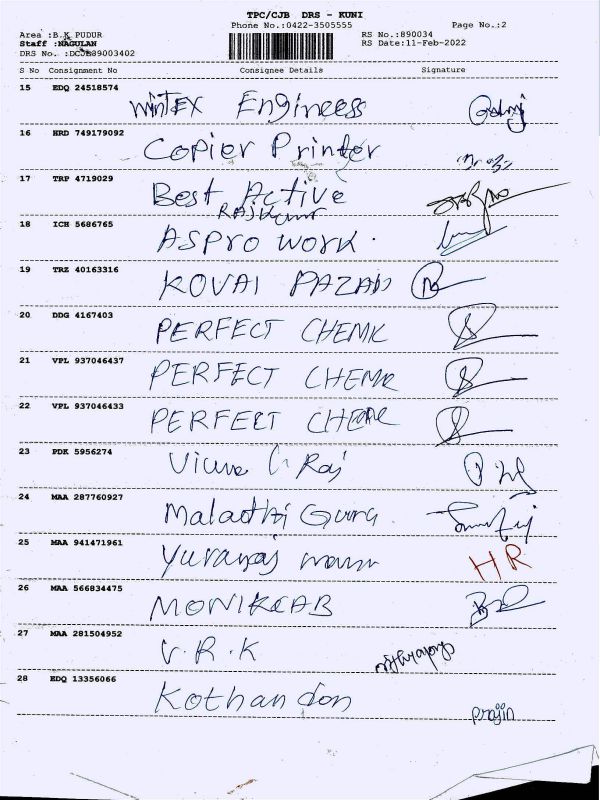 TPC/CJB DRS - KUNI
Phone No.:0422-3505555 Page No.:2
Area :B.K PUDUR RS No.:890034
Staff :NAGULAN RS Date:11-Feb-2022
DRS No. :DCJB89003402
S No Consignment No Consignee Details Signature
15 EDQ 24518574 WINTEX Engineess
16 HRD 749179092 Copier Printer
17 TRP 4719029 Best Active
RAJKumar
18 ICH 5686765 ASPRO WORK.
19 TRZ 40163316 KOVAI
20 DDG 4167403 PERFECT CHEMK
21 VPL 937046437 PERFECT CHEMK
22 VPL 937046433 PERFECT
23 PDK 5956274 Raj
24 MAA 287760927 Malathi Guru
25 MAA 941471961 Yuvaraj HR
26 MAA 566834475 MONIKCAB
27 MAA 281504952 V.R.K
28 EDQ 13356066 Kothandon prajin